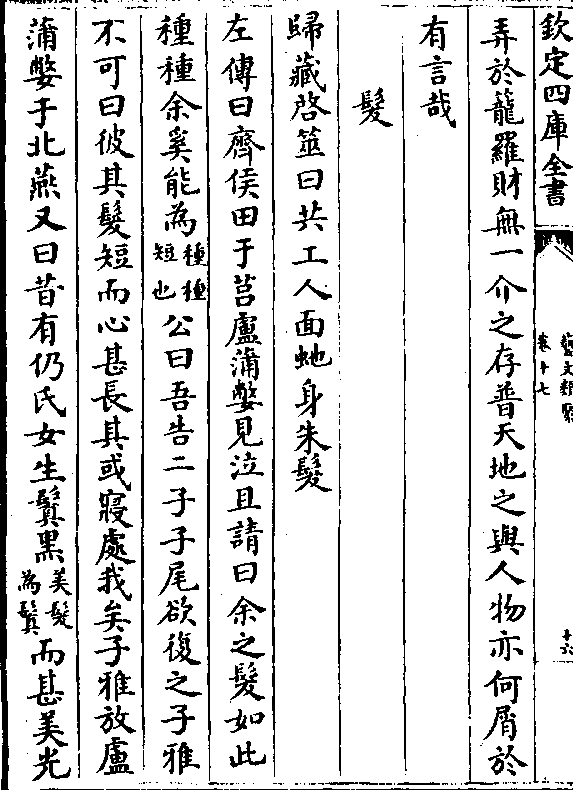 欽定四庫全書
藝文類聚
卷十七
十六
弄於籠羅財無一介之存普天地之與人物亦何屑於
有言哉
髮
歸藏啓筮曰共工人面虵身朱髮
左傳曰齊侯田于莒盧蒲嫳見泣且請曰余之髮如此
種種余奚能為種種短也公曰吾告二子子尾欲復之子雅
不可曰彼其髮短而心甚長其或寢處我矣子雅放盧
蒲嫳于北燕又曰昔有仍氏女生鬒黑美髮為鬒而甚美光